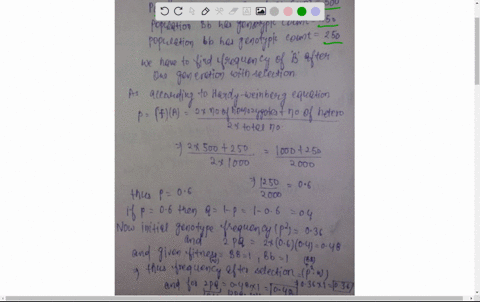 500
population Bb has genotype count = 250
population bb has genotype count = 250
we have to find frequency of 'B' after
one generation with selection
As according to Hardy-weinberg equation
p = (f)(A) = 2x no of homozygotes + no of hetero
2x total no
⇒ 2x500 + 250 = 1000+250
2x1000 2000
⇒ 1250 = 0.6
2000
thus p = 0.6
If p = 0.6 then q = 1-p = 1-0.6 = 0.4
Now initial genotype frequency (p²) = 0.36
and 2pq = 2x(0.6)(0.4) = 0.48
and given fitness BB = 1, Bb = 1
⇒ thus frequency after selection (p²)
and for 2pq = 0.48x1 = 0.48 0.36x1 = 0.36